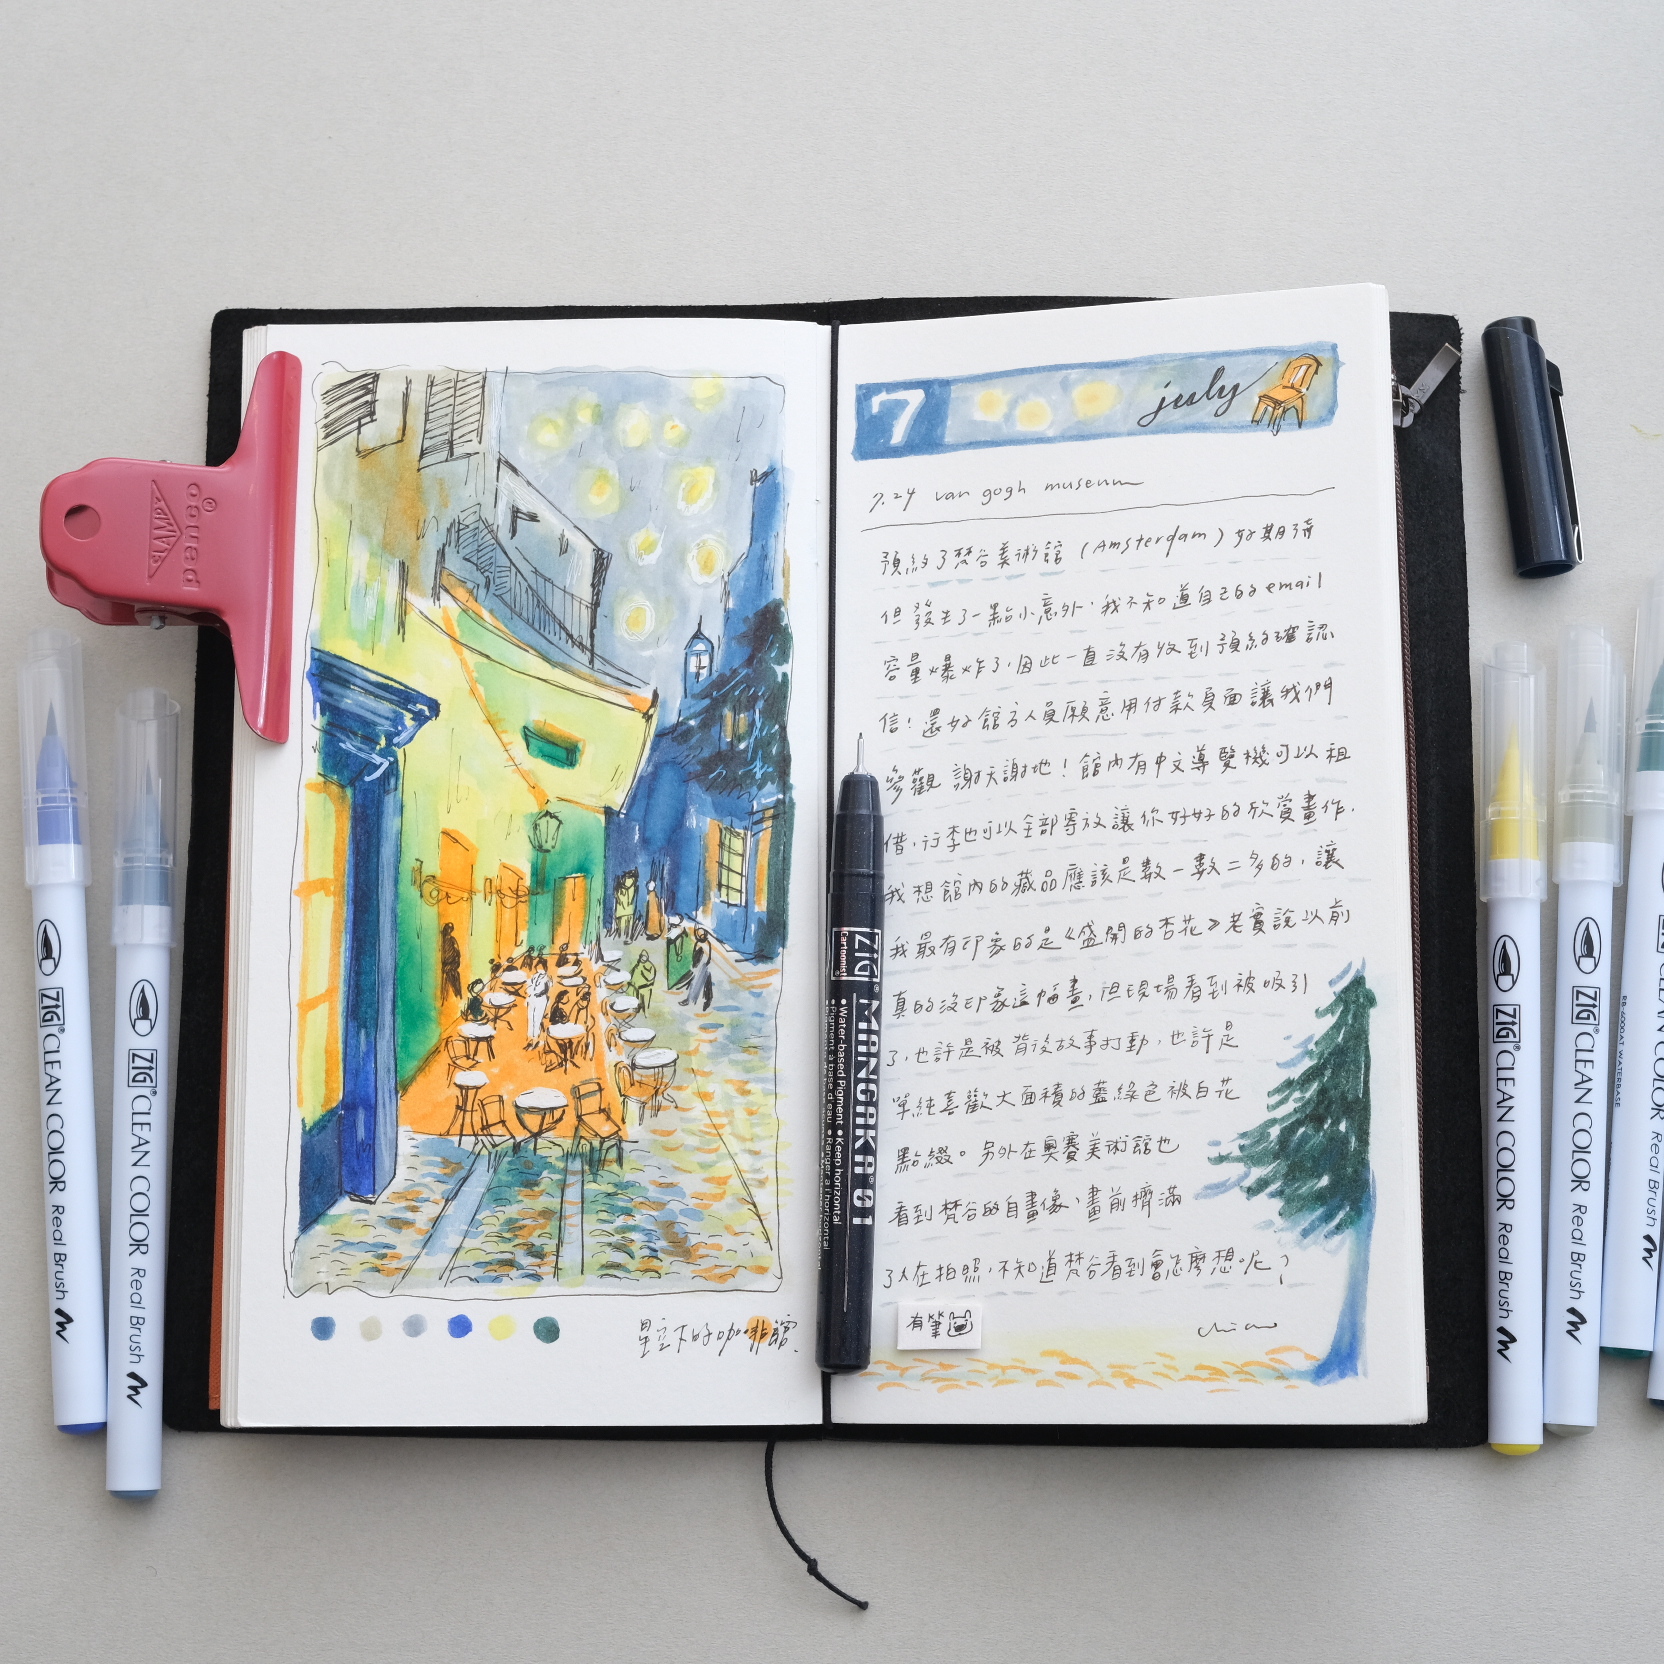 7
july
7.24 van gogh museum
預約了梵谷美術館 (Amsterdam) 好期待
但發生了一點小意外,我不知道自己的email
容量爆炸了,因此一直沒有收到預約確認
信!還好館方人員願意用付款頁面讓我們
參觀 謝天謝地!館內有中文導覽機可以租
借,行李也可以全部寄放讓你好好的欣賞畫作.
我想館內的藏品應該是數一數二多的,讓
我最有印象的是《盛開的杏花》老實說以前
真的沒印象這幅畫,但現場看到被吸引
了,也許是被背後故事打動,也許是
單純喜歡大面積的藍綠色被白花
點綴。另外在奧賽美術館也
看到梵谷的自畫像、畫前擠滿
了人在拍照,不知道梵谷看到會怎麼想呢?
有筆
星空下的咖啡館.
ZIG® MANGAKA® 01
Cartoonist
•Water-based Pigment •Keep horizontal
ZIG® CLEAN COLOR Real Brush
ZIG® CLEAN COLOR Real Brush
ZIG® CLEAN COLOR Real Brush
ZIG® CLEAN COLOR Real Brush
RB-6000AT WATERBASE
CLEAN COLOR Real Brush
penco®
CLAMPY